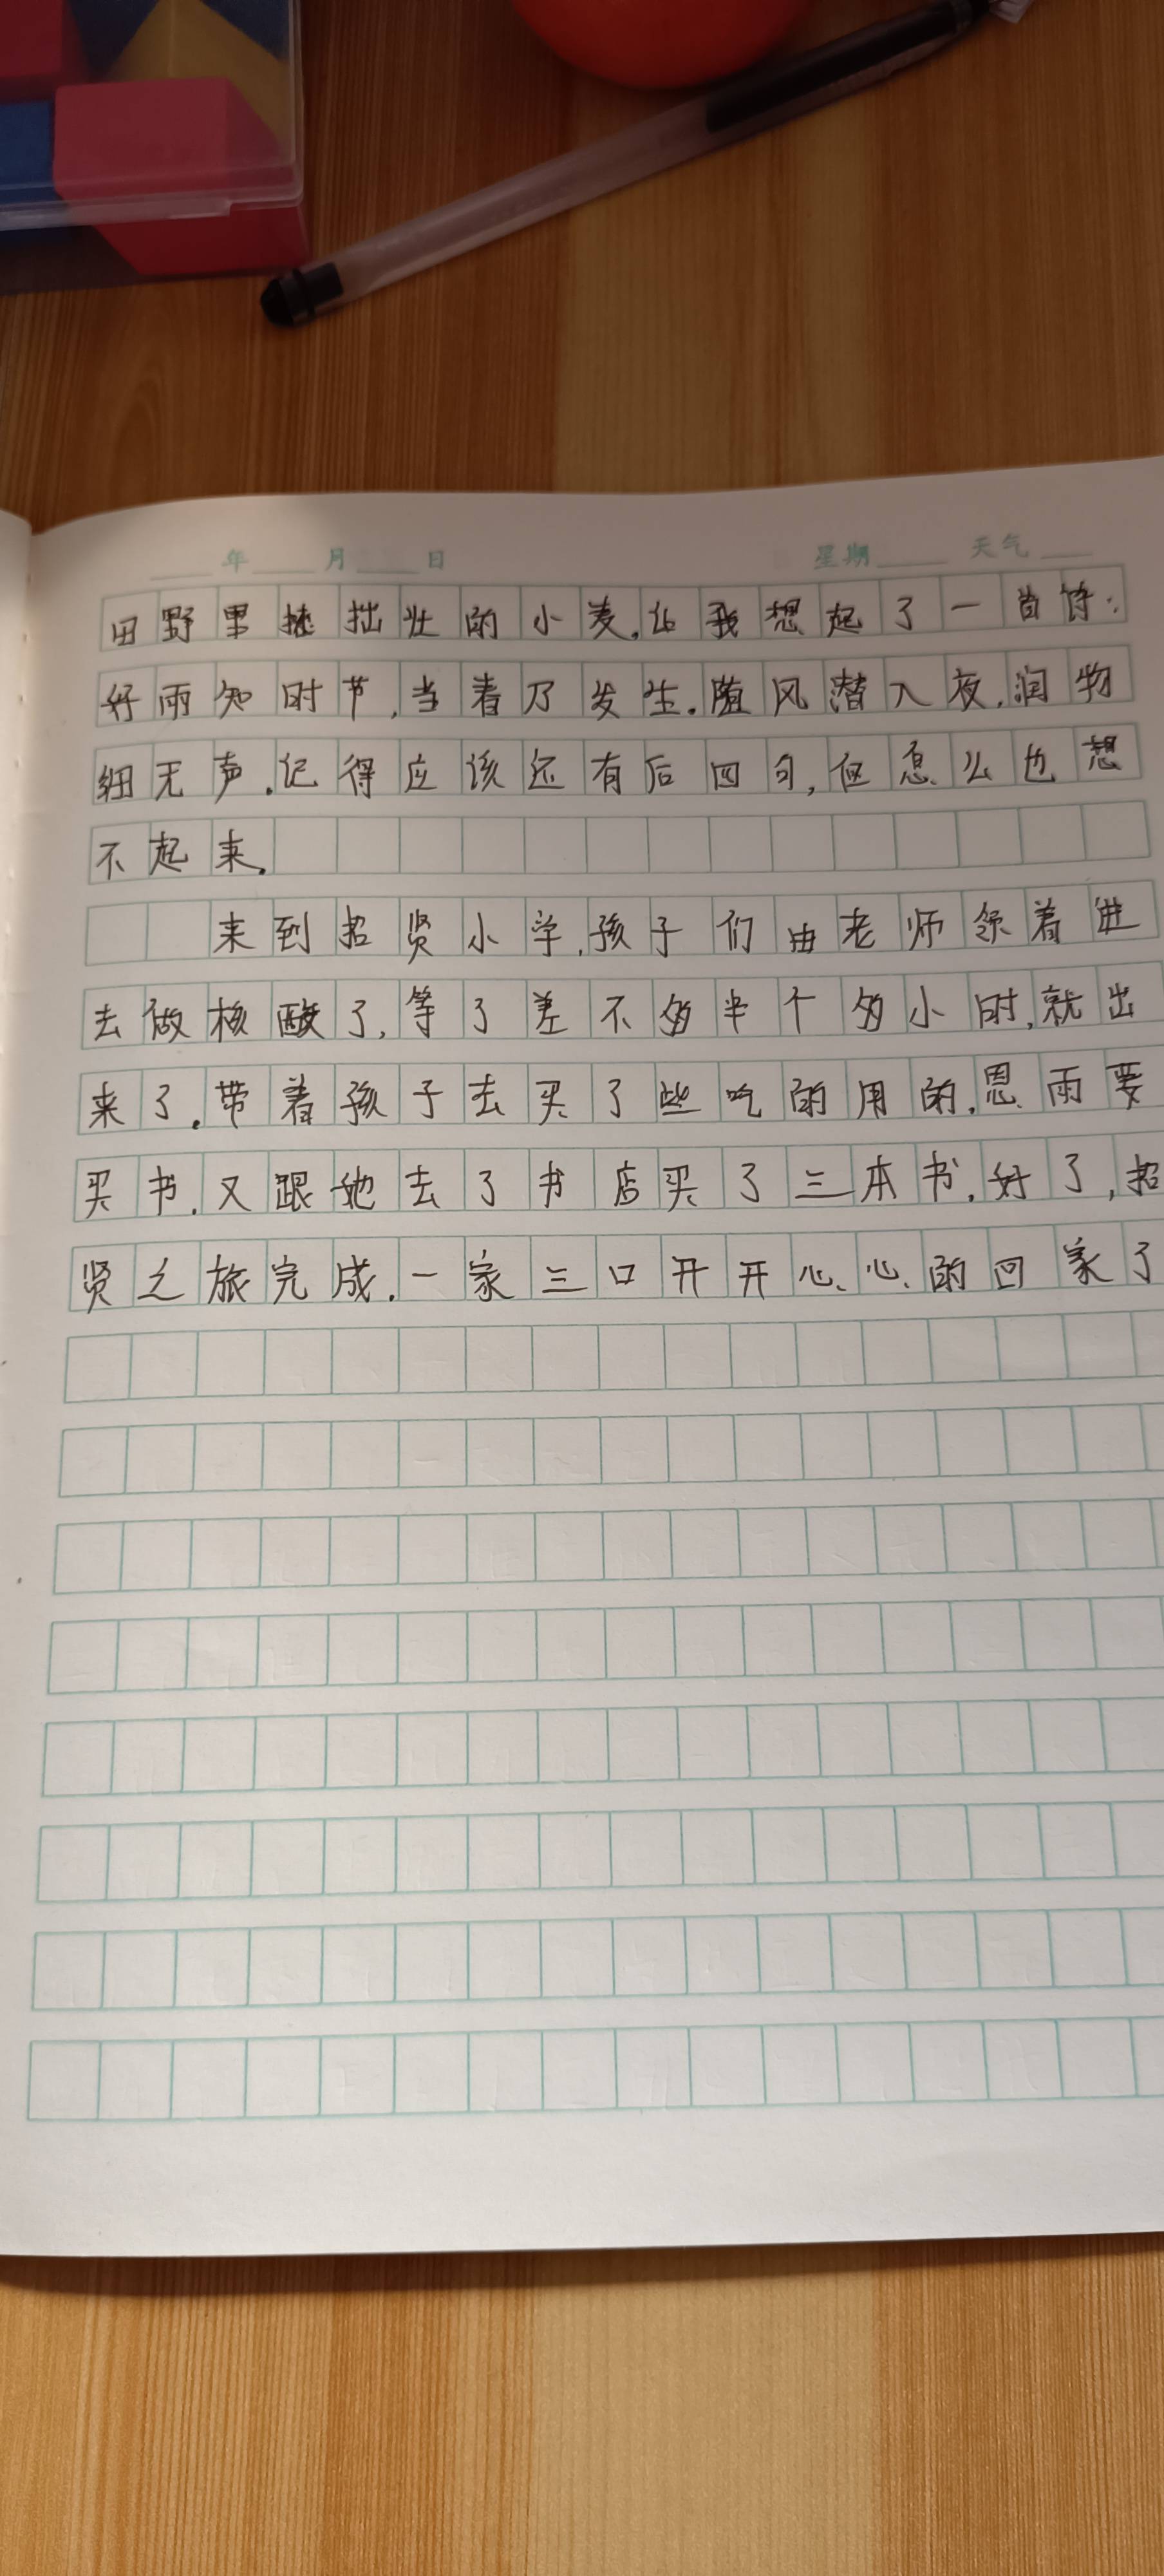 年 月 日 星期 天气
田野里拙壮的小麦,让我想起了一首诗:
好雨知时节,当春乃发生.随风潜入夜,润物
细无声.记得应该还有后四句,但怎么也想
不起来.
来到招贤小学,孩子们由老师领着进
去做核酸了,等了差不多半个多小时,就出
来了.带着孩子去买了些吃的用的,恩雨要
买书,又跟她去了书店买了三本书,好了,招
贤之旅完成.一家三口开开心心的回家了